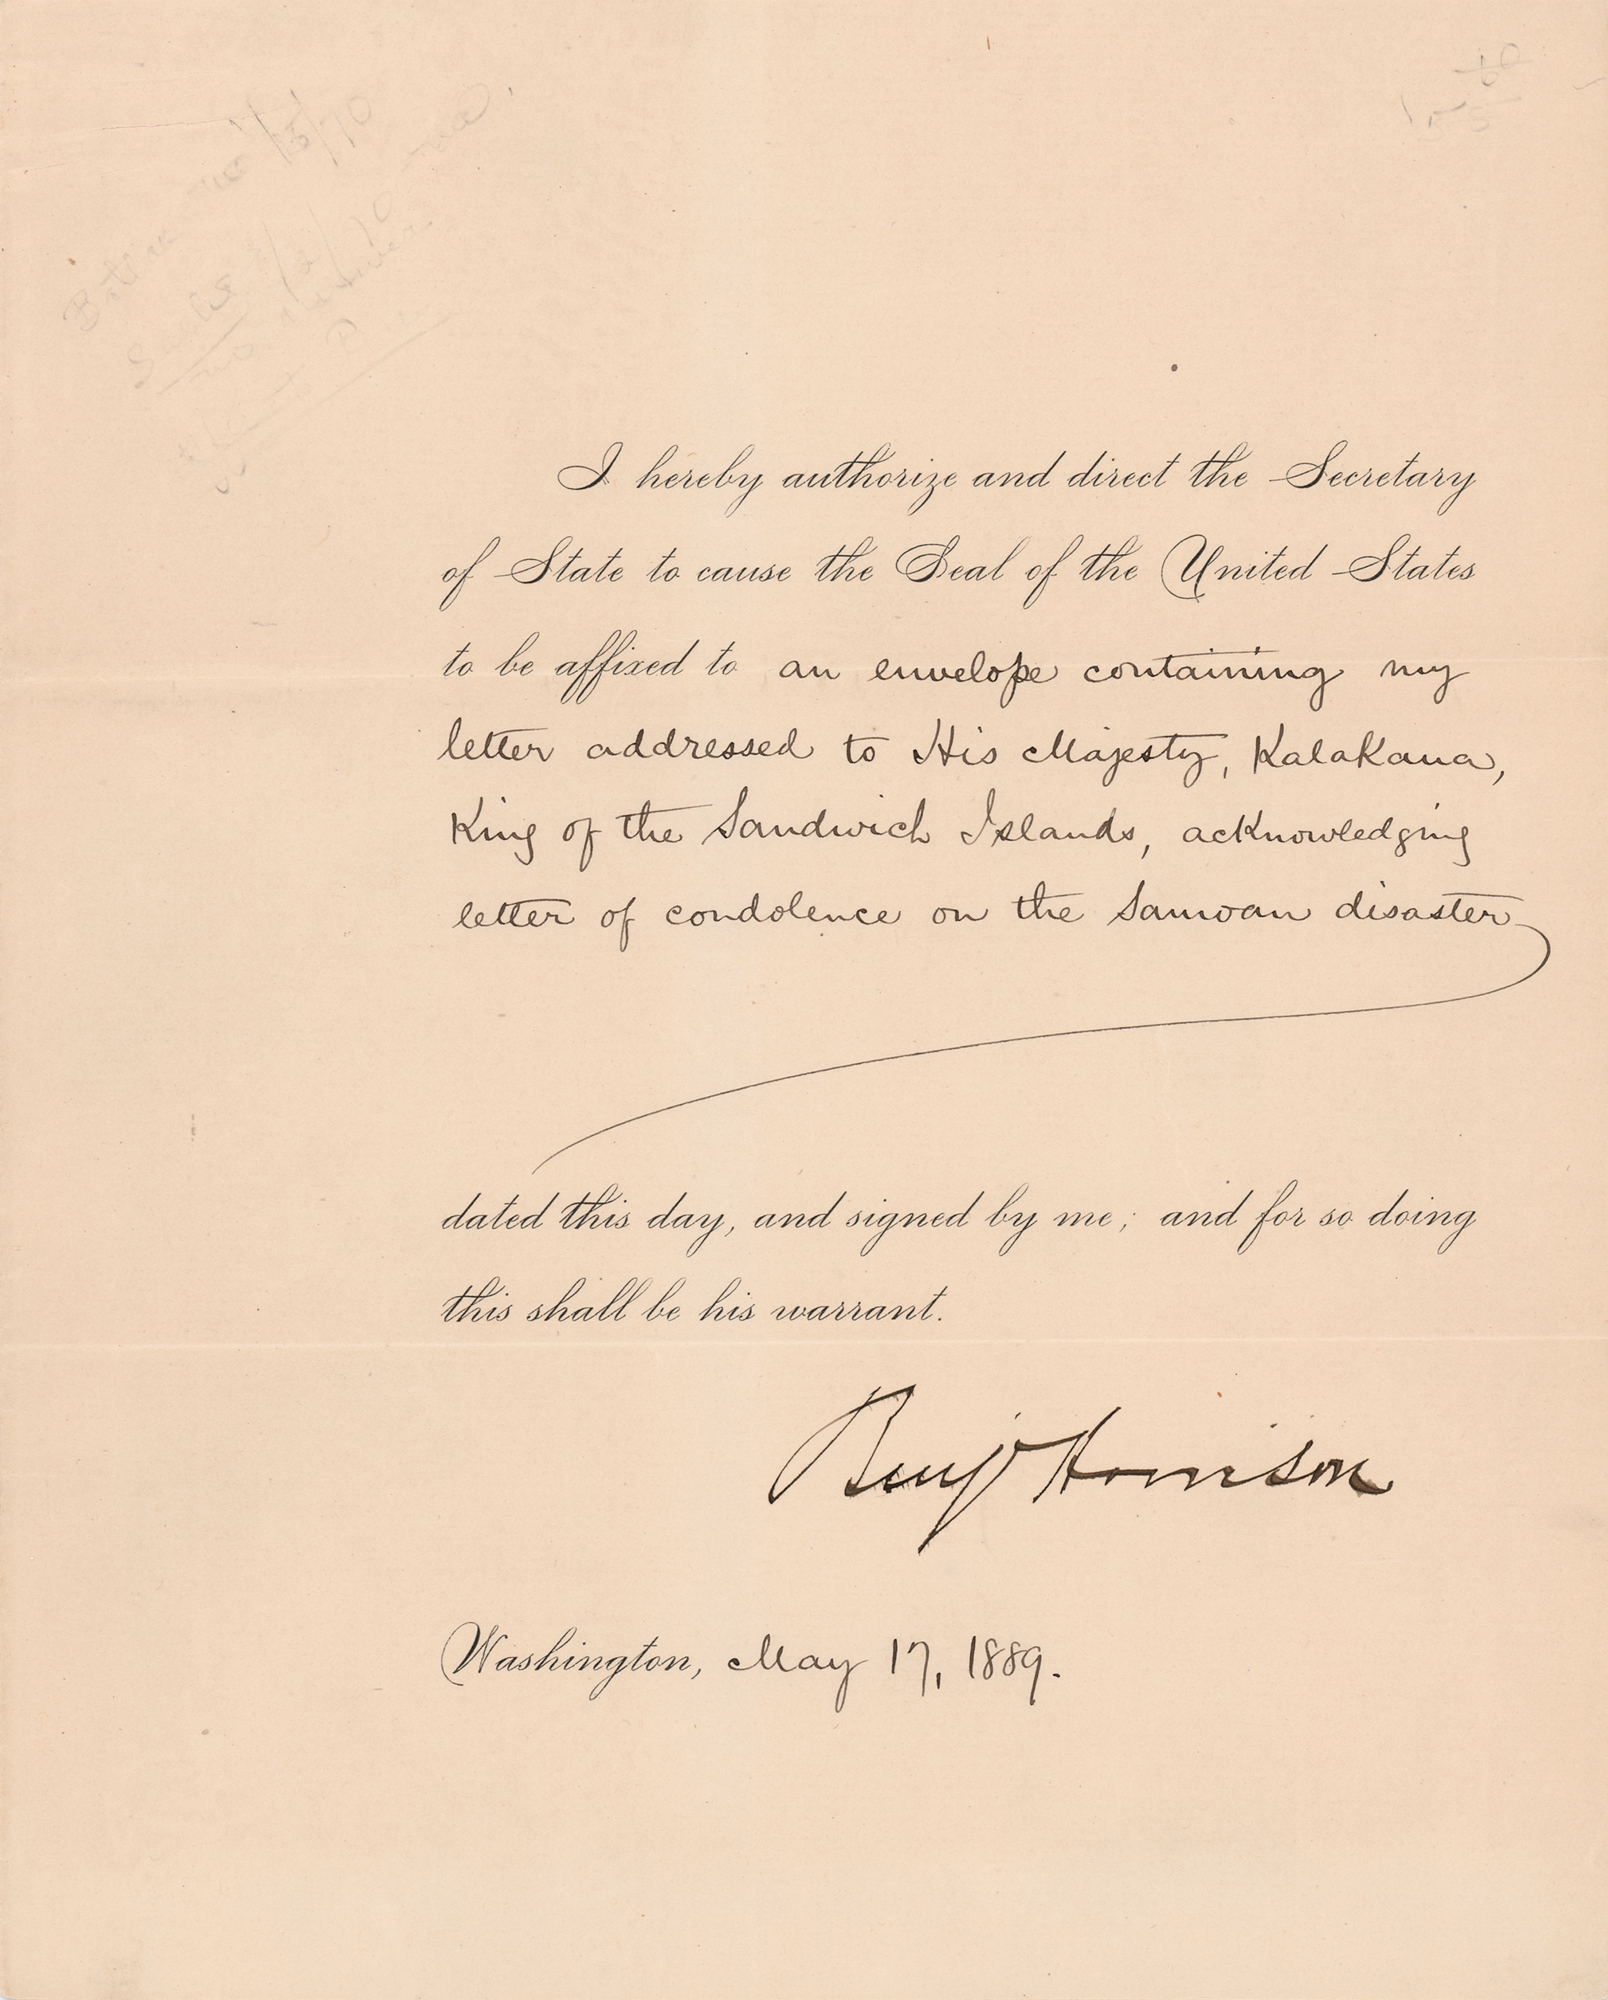 I hereby authorize and direct the Secretary
of State to cause the Seal of the United States
to be affixed to an envelope containing my
letter addressed to His Majesty, Kalakaua,
King of the Sandwich Islands, acknowledging
letter of condolence on the Samoan disaster
dated this day, and signed by me; and for so doing
this shall be his warrant.
Benj Harrison
Washington, May 17, 1889.